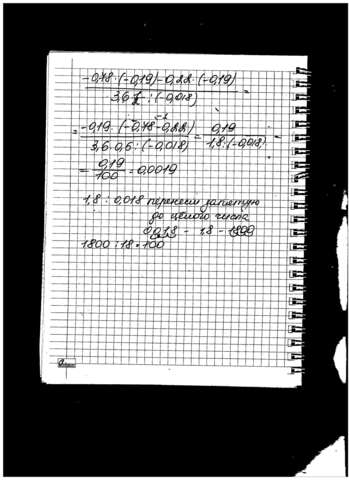 -0,78·(-0,19)-0,22·(-0,19)
3,6·½:(-0,018) =
-1
= -0,19·(-0,78-0,22) = 0,19
3,6·0,5:(-0,018) 1,8:(-0,018) =
= 0,19 = 0,0019
100
1,8:0,018 перенесем запятую
до целого числа
0,018 - 18 - 1800
1800:18=100